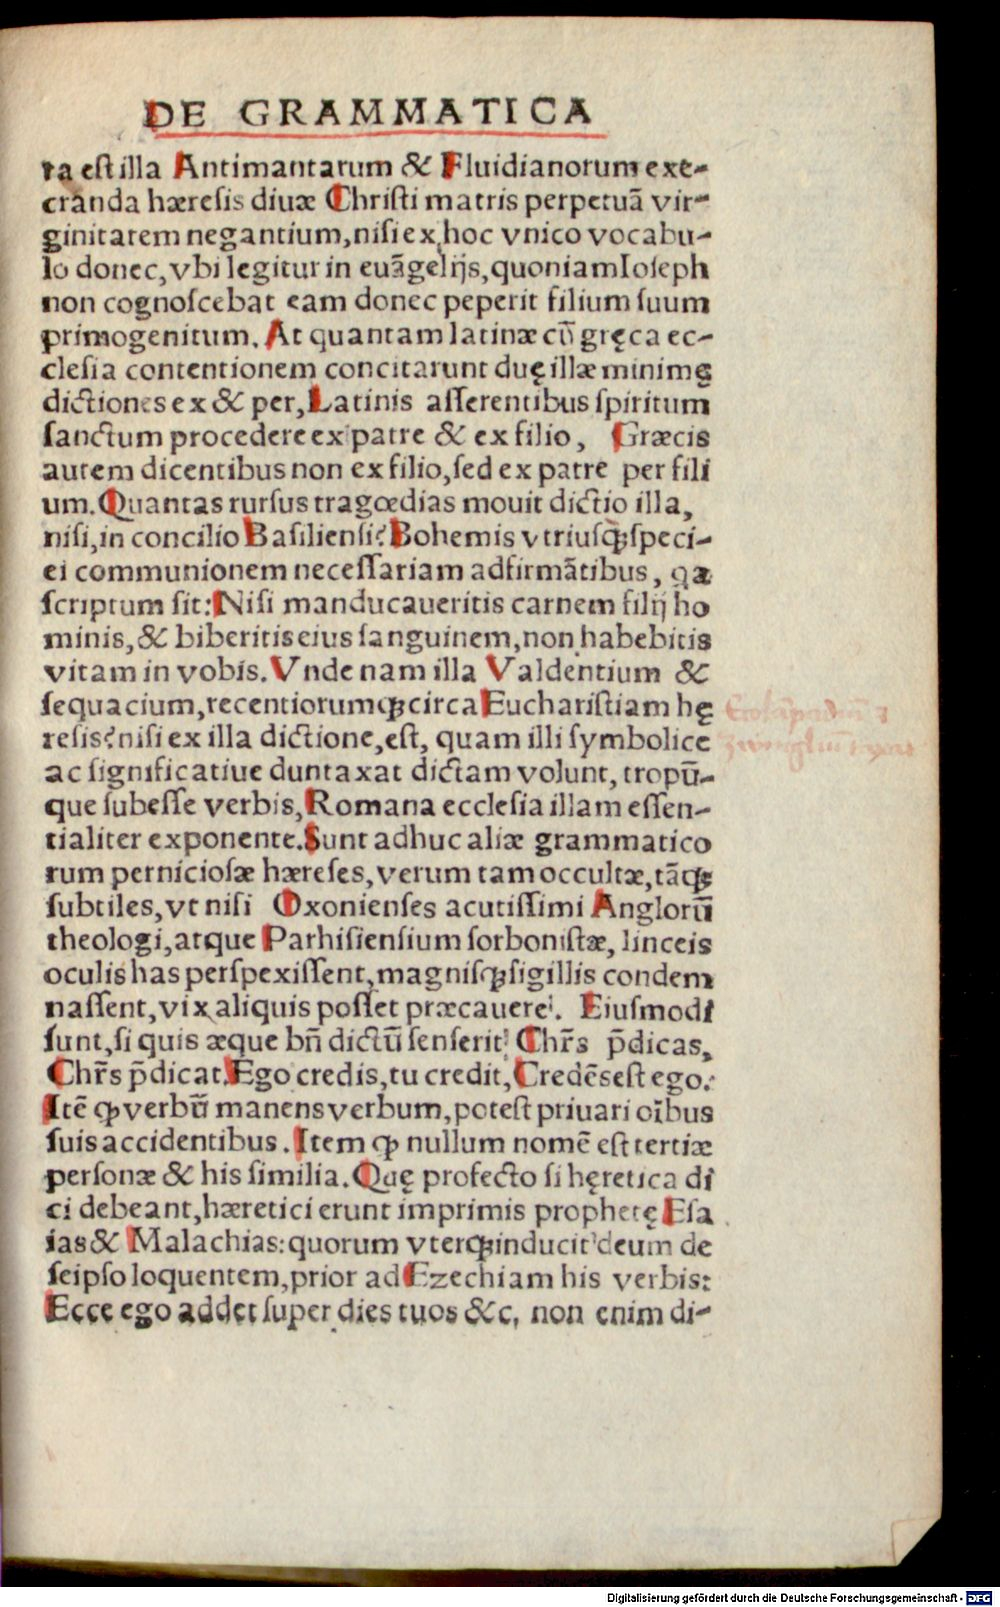 DE GRAMMATICA
ta est illa Antimantarum & Fluidianorum exe-
cranda hæresis diuæ Christi matris perpetuā vir-
ginitatem negantium, nisi ex hoc vnico vocabu-
lo donec, vbi legitur in euāgelijs, quoniam Ioseph
non cognoscebat eam donec peperit filium suum
primogenitum. At quantam latinæ cū gręca ec-
clesia contentionem concitarunt duę illæ minimę
dictiones ex & per, Latinis asserentibus spiritum
sanctum procedere ex patre & ex filio, Græcis
autem dicentibus non ex filio, sed ex patre per fili
um. Quantas rursus tragœdias mouit dictio illa,
nisi, in concilio Basiliensi? Bohemis vtriusq; speci-
ei communionem necessariam adfirmātibus, qa
scriptum sit: Nisi manducaueritis carnem filij ho
minis, & biberitis eius sanguinem, non habebitis
vitam in vobis. Vnde nam illa Valdensium &
sequacium, recentiorumq; circa Eucharistiam hę
resis? nisi ex illa dictione, est, quam illi symbolice
ac significatiue duntaxat dictam volunt, tropū-
que subesse verbis, Romana ecclesia illam essen-
tialiter exponente. Sunt adhuc aliæ grammatico
rum perniciosæ hæreses, verum tam occultæ, tāq;
subtiles, vt nisi Oxonienses acutissimi Anglorū
theologi, atque Parhisiensium sorbonistæ, linceis
oculis has perspexissent, magnisq; sigillis condem
nassent, vix aliquis posset præcauere. Eiusmodi
sunt, si quis æque bn̄ dictū senserit: Chr̄s p̄dicas,
Chr̄s p̄dicat. Ego credis, tu credit, Credēs est ego.
Itē ꝙ verbū manens verbum, potest priuari oībus
suis accidentibus. Item ꝙ nullum nomē est tertiæ
personæ & his similia. Quę profecto si hęretica di
ci debeant, hæretici erunt imprimis prophetę Esa
ias & Malachias: quorum vterq; inducit deum de
seipso loquentem, prior ad Ezechiam his verbis:
Ecce ego addet super dies tuos &c. non enim di-
Digitalisierung gefördert durch die Deutsche Forschungsgemeinschaft - DFG